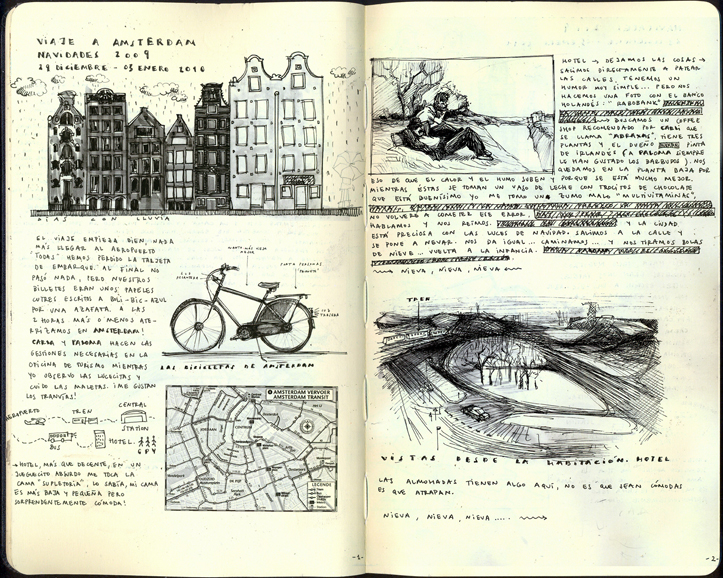 VIAJE A AMSTERDAM
NAVIDADES 2009
29 DICIEMBRE - 03 ENERO 2010
DÍAS CON LLUVIA
EL VIAJE EMPIEZA BIEN, NADA
MÁS LLEGAR AL AEROPUERTO
"TODAS" HEMOS PERDIDO LA TARJETA
DE EMBARQUE. AL FINAL NO
PASÓ NADA, PERO NUESTROS
BILLETES ERAN UNOS PAPELES
CUTRES ESCRITOS A BOLI-BIC-AZUL
POR UNA AZAFATA. A LAS
2 HORAS MÁS O MENOS ATE-
RRIZAMOS EN AMSTERDAM!
CARLA Y PALOMA HACEN LAS
GESTIONES NECESARIAS EN LA
OFICINA DE TURISMO MIENTRAS
YO OBSERVO LAS LUCECITAS Y
CUIDO LAS MALETAS. ¡ME GUSTAN
LOS TRANVÍAS!
AEROPUERTO
TREN
CENTRAL
STATION
BUS
HOTEL
→ HOTEL, MÁS QUE DECENTE, EN UN
JUEGUECITO ABSURDO ME TOCA LA
CAMA "SUPLETORIA", LO SABÍA, MI CAMA
ES MÁS BAJA Y PEQUEÑA PERO
SORPRENDENTEMENTE CÓMODA!
LAS BICICLETAS DE AMSTERDAM
AMSTERDAM VERVOER
AMSTERDAM TRANSIT
LEGENDE
-1-
HOTEL → DEJAMOS LAS COSAS →
SALIMOS DIRECTAMENTE A PATEAR
LAS CALLES. TENEMOS UN
HUMOR MUY SIMPLE... PERO NOS
HACEMOS UNA FOTO CON EL BANCO
HOLANDÉS: "RABOBANK"
BUSCAMOS UN COFFEE
SHOP RECOMENDADO POR CARLI QUE
SE LLAMA "ABRAXAS", TIENE TRES
PLANTAS Y EL DUEÑO PINTA
DE IRLANDÉS (A PALOMA SIEMPRE
LE HAN GUSTADO LOS BARBUDOS). NOS
QUEDAMOS EN LA PLANTA BAJA POR
ESO DE QUE EL CALOR Y EL HUMO SUBEN Y PORQUE SE ESTÁ MUCHO MEJOR.
MIENTRAS ÉSTAS SE TOMAN UN VASO DE LECHE CON TROCITOS DE CHOCOLATE
QUE ESTÁ BUENÍSIMO YO ME TOMO UN ZUMO MALO "MULTIVITAMINAS",
NO VOLVERÉ A COMETER ESE ERROR.
HABLAMOS Y NOS REIMOS. Y LA CIUDAD
ESTÁ PRECIOSA CON LAS LUCES DE NAVIDAD. SALIMOS A LA CALLE Y
SE PONE A NEVAR. NOS DA IGUAL... CAMINAMOS... Y NOS TIRAMOS BOLAS
DE NIEVE. VUELTA A LA INFANCIA.
NIEVA, NIEVA, NIEVA
TREN
VISTAS DESDE LA HABITACIÓN. HOTEL
LAS ALMOHADAS TIENEN ALGO AQUÍ, NO ES QUE SEAN CÓMODAS
ES QUE ATRAPAN.
NIEVA, NIEVA, NIEVA.....
-2-